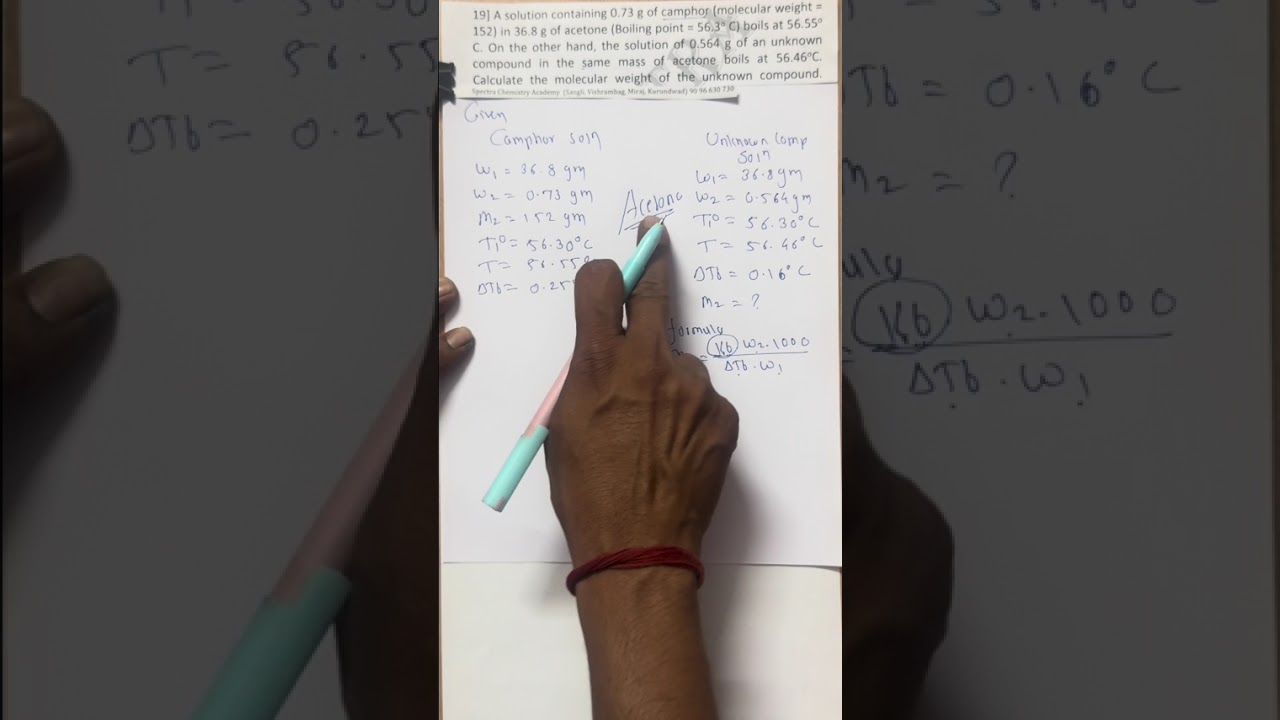 19] A solution containing 0.73 g of camphor (molecular weight =
152) in 36.8 g of acetone (Boiling point = 56.3° C) boils at 56.55°
C. On the other hand, the solution of 0.564 g of an unknown
compound in the same mass of acetone boils at 56.46°C.
Calculate the molecular weight of the unknown compound.
Spectra Chemistry Academy (Sangli, Vishrambag, Miraj, Kurundwad) 90 96 630 730
Given
Camphor soln
W1 = 36.8 gm
W2 = 0.73 gm
M2 = 152 gm
T1° = 56.30°C
T = 56.55°
ΔTb = 0.25
Acetone
Unknown Comp
Soln
W1 = 36.8 gm
W2 = 0.564 gm
T1° = 56.30°C
T = 56.46°C
ΔTb = 0.16°C
M2 = ?
formula
= Kb W2. 1000
ΔTb . W1
T = 56.55
ΔTb = 0.25
Tb = 0.16° C
M2 = ?
Kb W2. 1000
ΔTb . W1